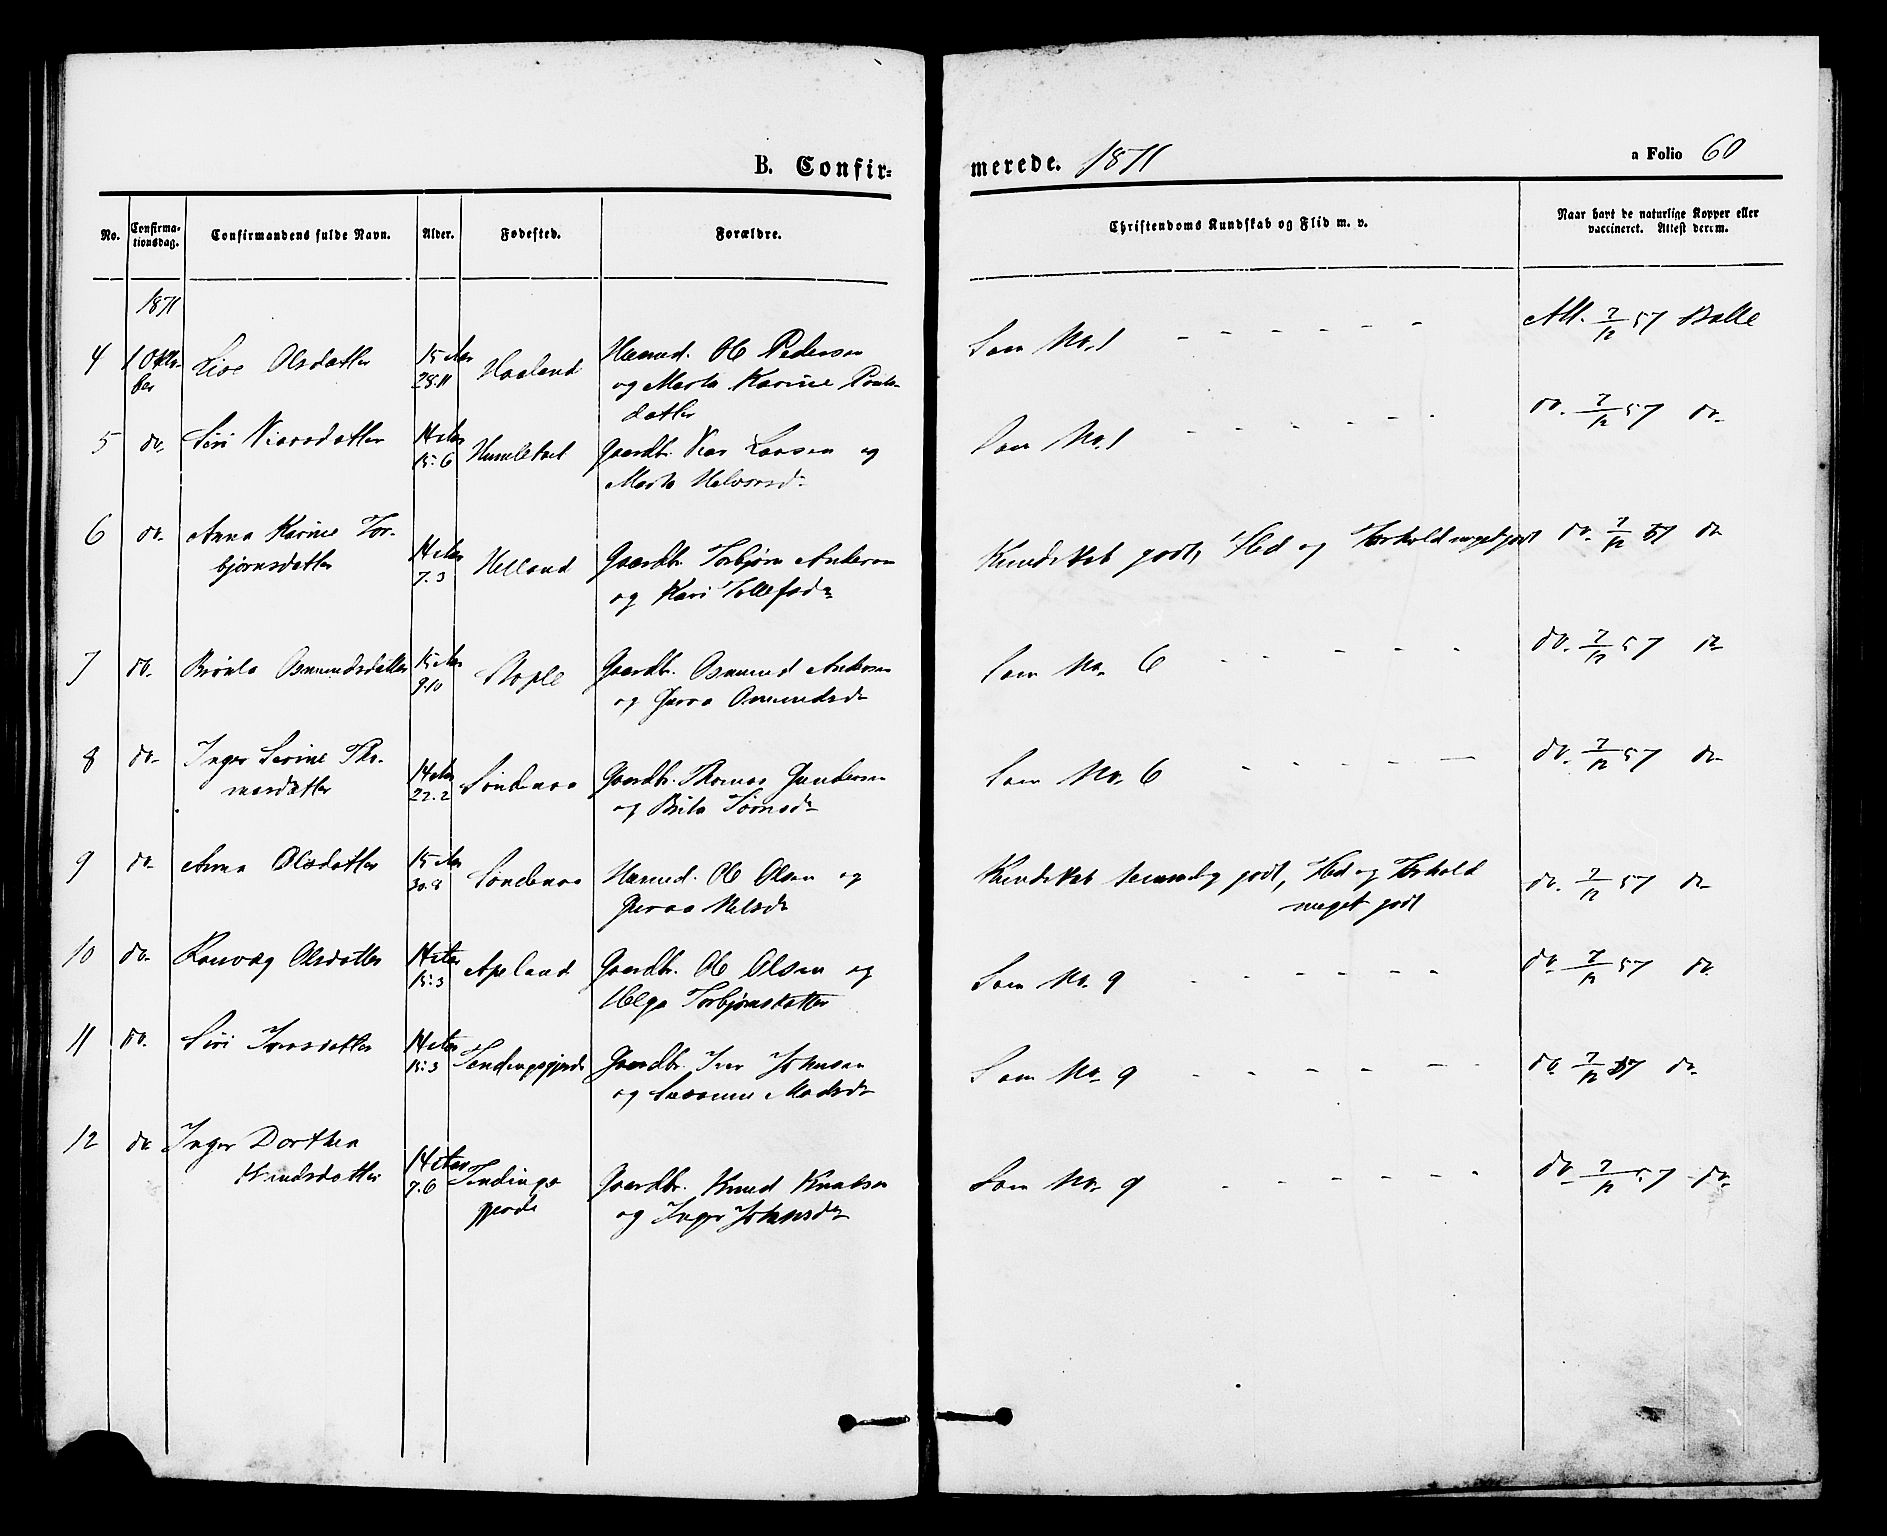 B. Confir-
merede. 1871
a Folio 60
No. Confirma-tionsdag. Confirmandens fulde Navn. Alder. Fødested. Forældre. Christendoms Kundskab og Flid m. v. Naar havt de naturlige Kopper eller vaccineret. Attest derom.
1871
4 1 Okto-ber Live Olsdatter 15 Aar 28.11 Haaland Huusmd. Ole Pedersen
og Marta Karine Pouls-
datter
Som No. 1 - - - - - - Att. 7/12 57 Balle
5 do. Siri Viarsdatter 14 Aar 15.6 Humletvet Gaardbr. Viar Larsen og
Marta Halvorsd.
Som No. 1 - - - - - - do. 7/12 57 do.
6 do. Anna Karine Tor-
bjørnsdatter 14 Aar 7.3 Helland Gaardbr. Torbjørn Andersen
og Kari Tollefsdr
Kundskab godt, Flid og Forhold meget godt do. 7/12 57 do
7 do. Osmundsdatter 15 Aar 9.10 Stople Gaardbr. Osmund Andersen
og Osmundsdr
Som No. 6 - - - - - do. 7/12 57 do
8 do. Inger Serine Tho-
masdatter 14 Aar 22.2 Söndenaa Gaardbr. Thomas Gundersen
og Brita
Som No. 6 - - - - - do. 7/12 57 do
9 do. Anna Olsdatter 15 Aar 30.8 Söndenaa Huusmd. Ole Olsen og
Kundskab temmelig godt, Flid og Forhold
meget godt
do. 7/12 57 do
10 do. Ranvæg Olsdatter 14 Aar 15.3 Apeland Gaardbr. Ole Olsen og
Helga Torbjørnsdatter
Som No. 9 - - - - - do 7/12 57 do.
11 do. Siri Iversdatter 14 Aar 15.3 Tendingsgjerde Gaardbr. Iver Johnsen
og Susanne Madsdr
Som No. 9 - - - - - - do 7/12 57 do.
12 do Inger Dorthea
Knudsdatter 14 Aar 7.6 Tendings-
gjerde Gaardbr. Knud Knutsen
og Inger Johnsdr
Som No. 9 - - - - - - do. 7/12 57 do.